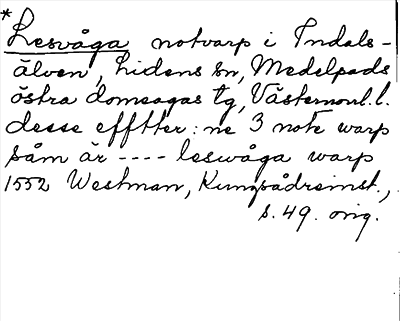 * Lesvåga notvarp i Indals-
älven, Lidens sn, Medelpads
östra domsagas tg, Västernorrl. l.
desse efftter:ne 3 note warp
såm är ---- leswåga warp
1552 Westman, Kungsådreinst.,
s. 49. orig.